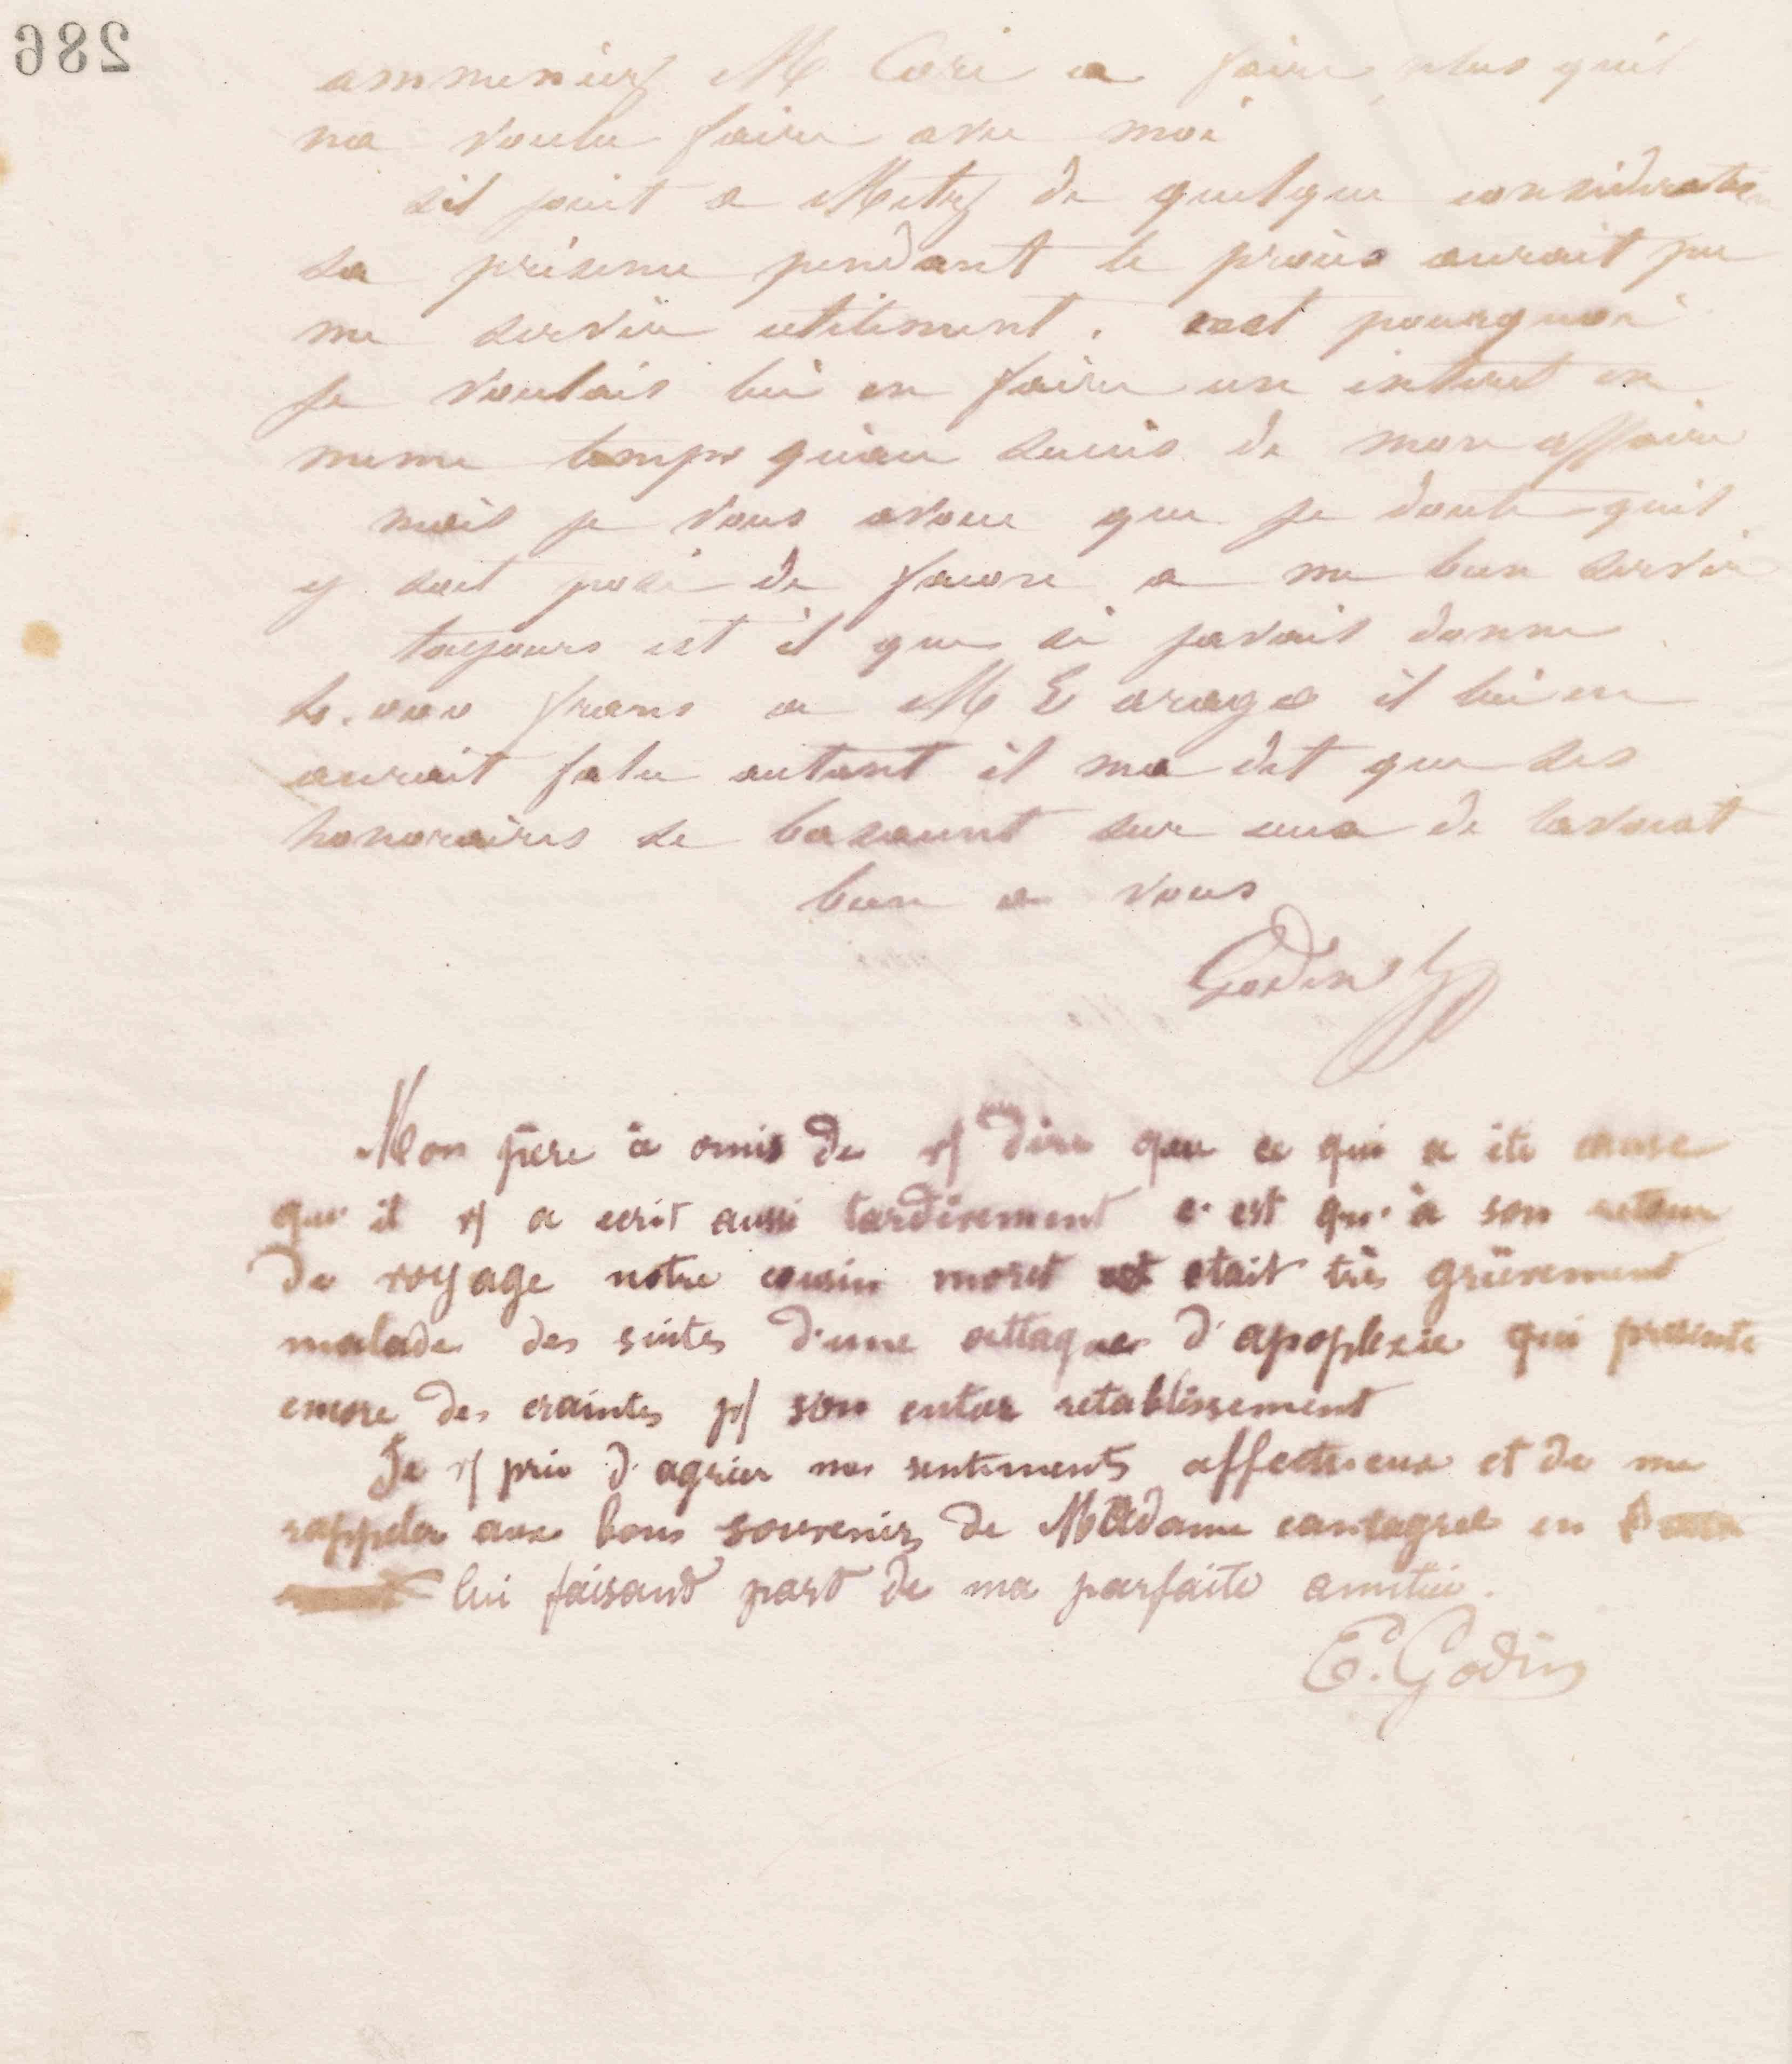 286
ammeniez M Cori a faire plus quil
na voulu faire avec moi
sil jouit a Metz de quelque consideration
sa présence pendant le procès aurait pu
me servir utilement. cest pourquoi
je voulais lui en faire un interet en
meme temps quau succès de mon affaire
mais je vous avoue que je doute quil
y soit posé de facon a me bien servir
toujours est il que si javais donné
francs a M E arago il lui en
aurait falu autant il ma dit que ses
honoraires se basaient sur ceux de lavocat
bien a vous
Godin
Mon père à omis de v/ dire que ce qui a été cause
que il v/ a ecrit aussi tardivement c'est qu'à son retour
de voyage notre cousin moret était très grièvement
malade des suites d'une attaque d'apoplexie qui presente
encore des craintes p/ son entier retablissement
Je v/ prie d'agréer mes sentiments affectueux et de me
rappeler aux bons souvenirs de Madame cantagrel en
lui faisant part de ma parfaite amitié.
E. Godin